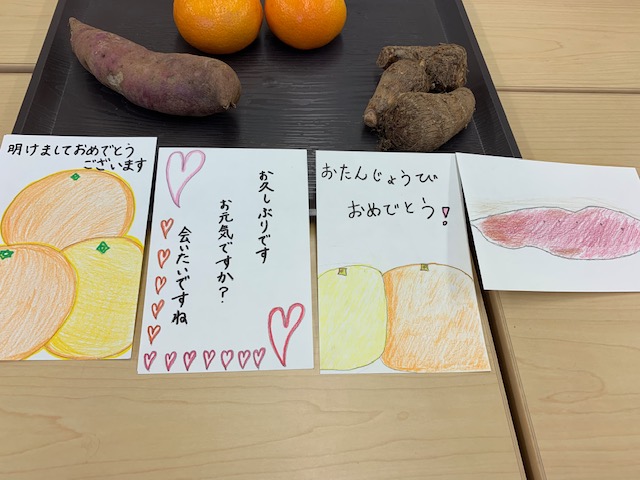 明けましておめでとう
ございます
お久しぶりです
お元気ですか?
会いたいですね
おたんじょうび
おめでとう!